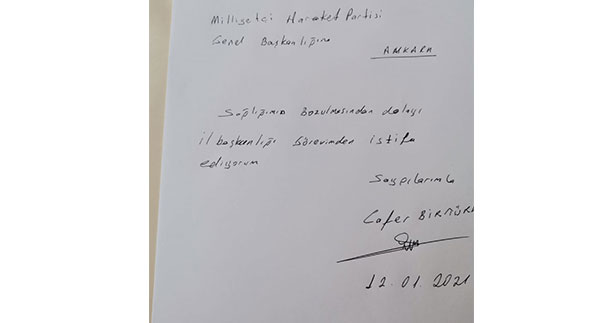 Milliyetci Hareket Partisi
Genel Başkanlığına
ANKARA
Sağlığımın Bozulmasından dolayı
il başkanlığı Görevimden istifa
ediyorum
Saygılarımla
Cafer
12.01.2021